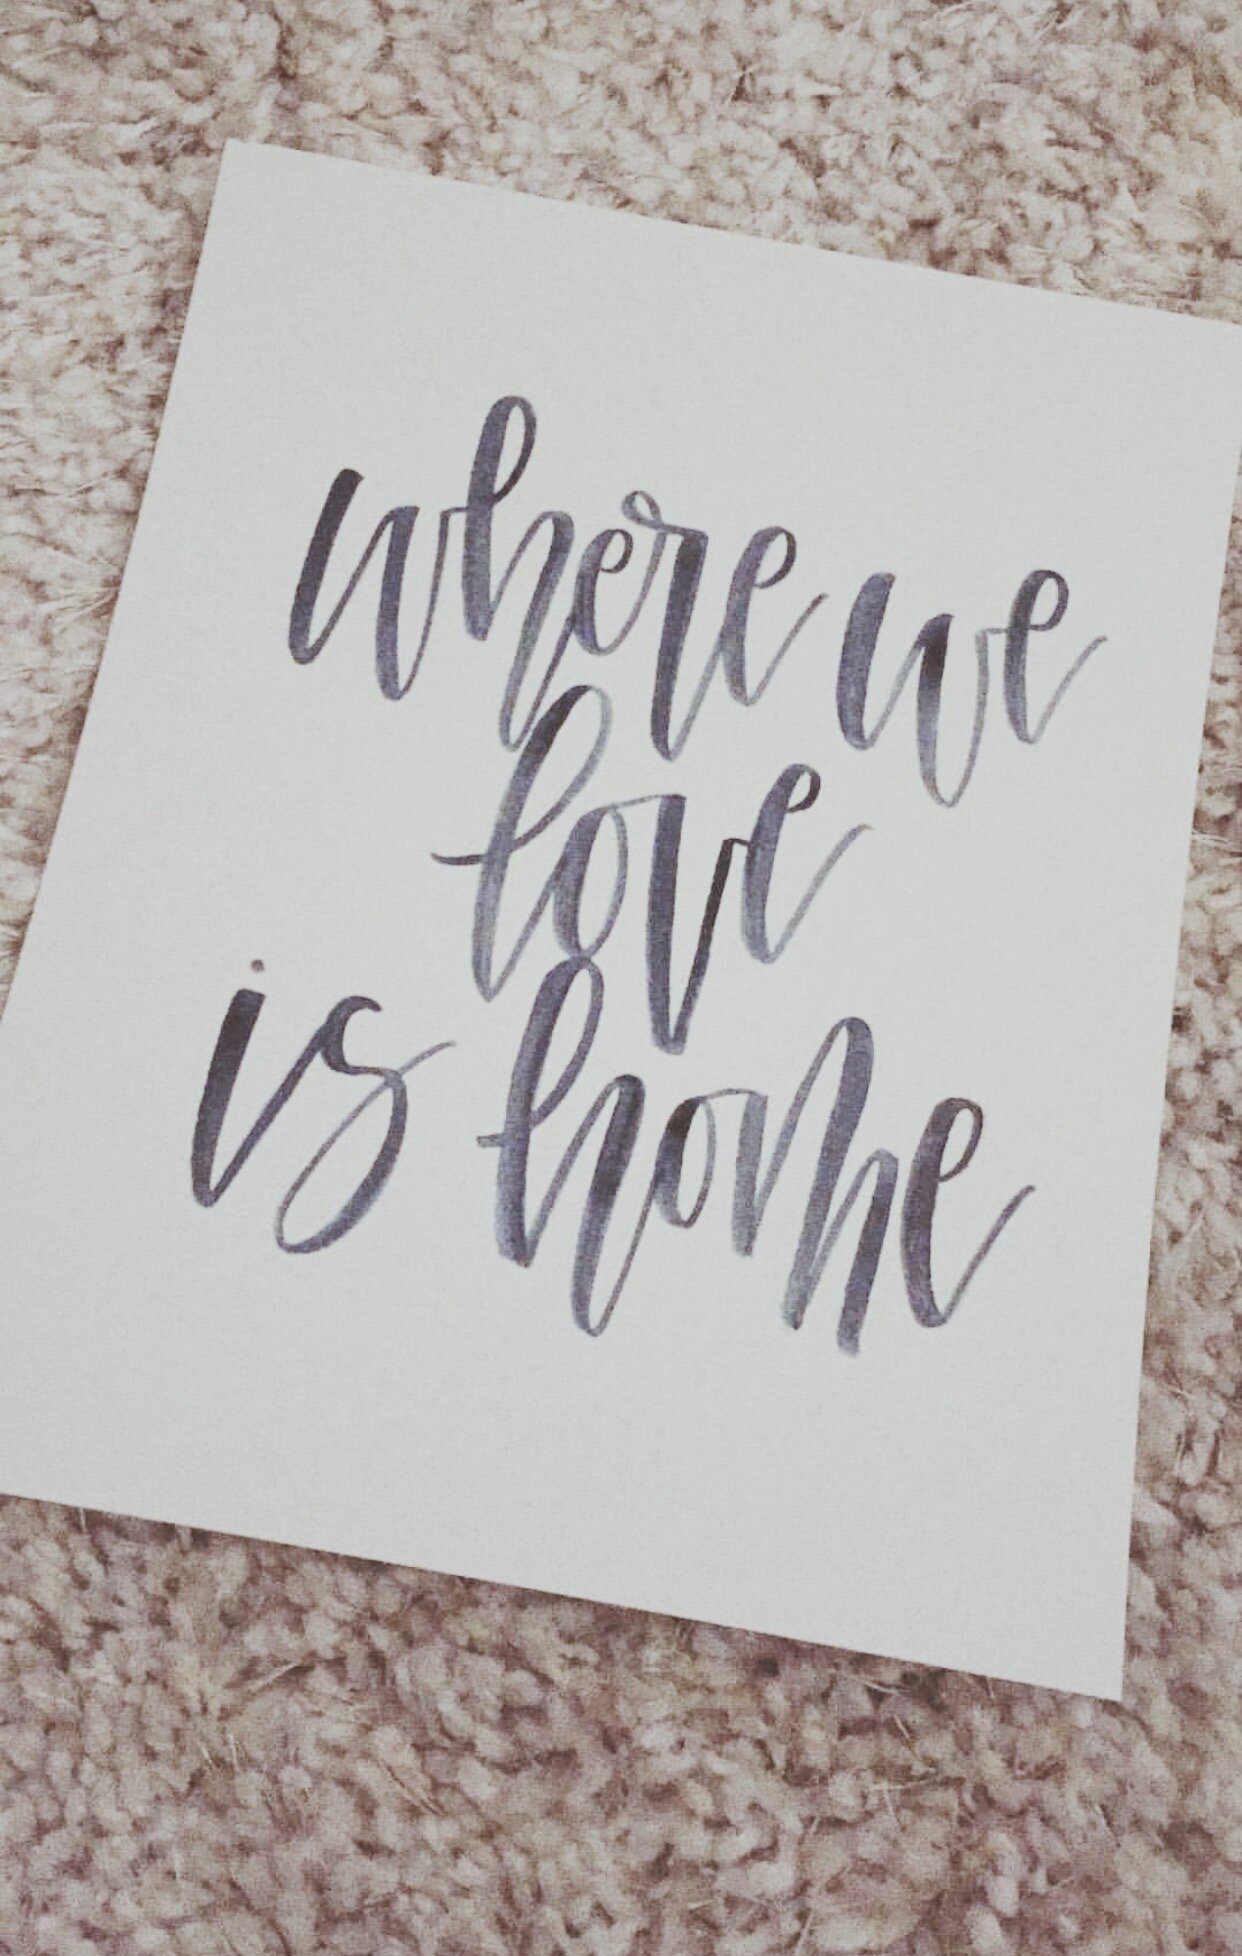 where we
love
is home